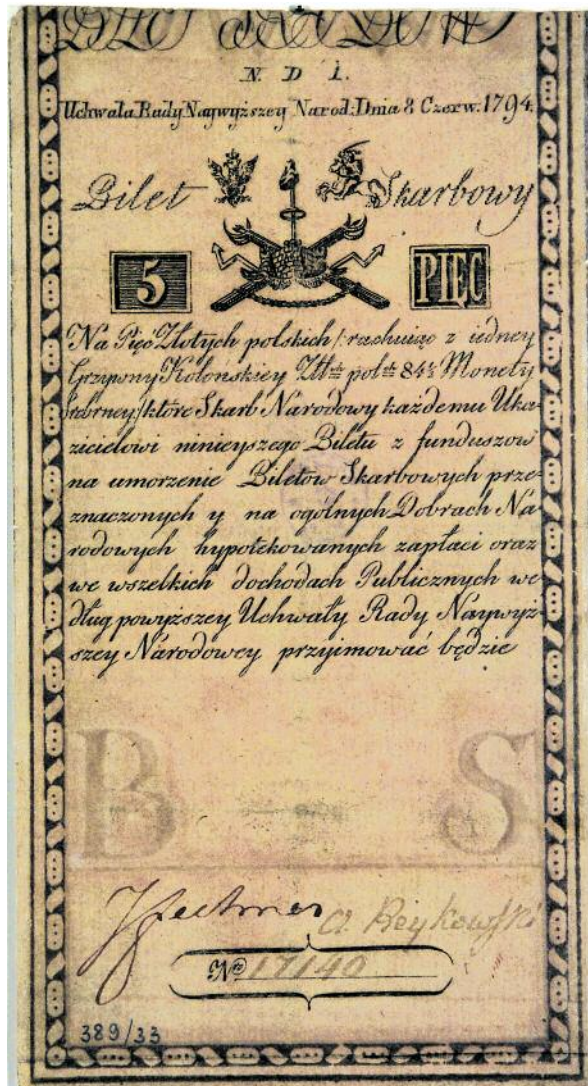 N. D 1.
Uchwała Rady Naywyższey Narod: Dnia 8 Czerw: 1794.
Bilet Skarbowy
5 PIĘC
Na Pięć Złotych polskich /: rachuiąc z iedney
Grzywny Kolońskiey Złt pol 84½ Monety
Srebrney :/ które Skarb Narodowy każdemu Uka-
zicielowi ninieyszego Biletu z funduszow
na umorzenie Biletow Skarbowych prze-
znaczonych y na ogólnych Dobrach Na-
rodowych hypotekowanych zapłaci oraz
we wszelkich dochodach Publicznych we-
dług powyższey Uchwały Rady Naywyż-
szey Narodowey przyimować będzie
B S
A Reykowski
No 17140
389/33